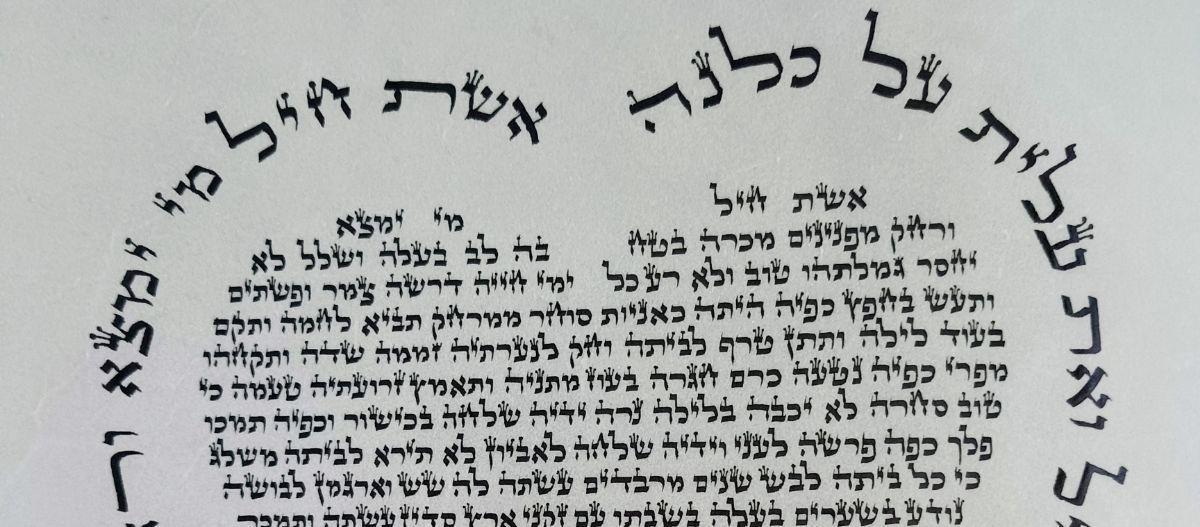 אשת חיל מי ימצא ור
ל ואת עלית על כלנה
אשת חיל מי ימצא
ורחק מפנינים מכרה בטח בה לב בעלה ושלל לא
יחסר גמלתהו טוב ולא רע כל ימי חייה דרשה צמר ופשתים
ותעש בחפץ כפיה היתה כאניות סוחר ממרחק תביא לחמה ותקם
בעוד לילה ותתן טרף לביתה וחק לנערתיה זממה שדה ותקחהו
מפרי כפיה נטעה כרם חגרה בעוז מתניה ותאמץ זרועתיה טעמה כי
טוב סחרה לא יכבה בלילה נרה ידיה שלחה בכישור וכפיה תמכו
פלך כפה פרשה לעני וידיה שלחה לאביון לא תירא לביתה משלג
כי כל ביתה לבש שנים מרבדים עשתה לה שש וארגמן לבושה
נודע בשערים בעלה בשבתו עם זקני ארץ סדין עשתה ותמכר